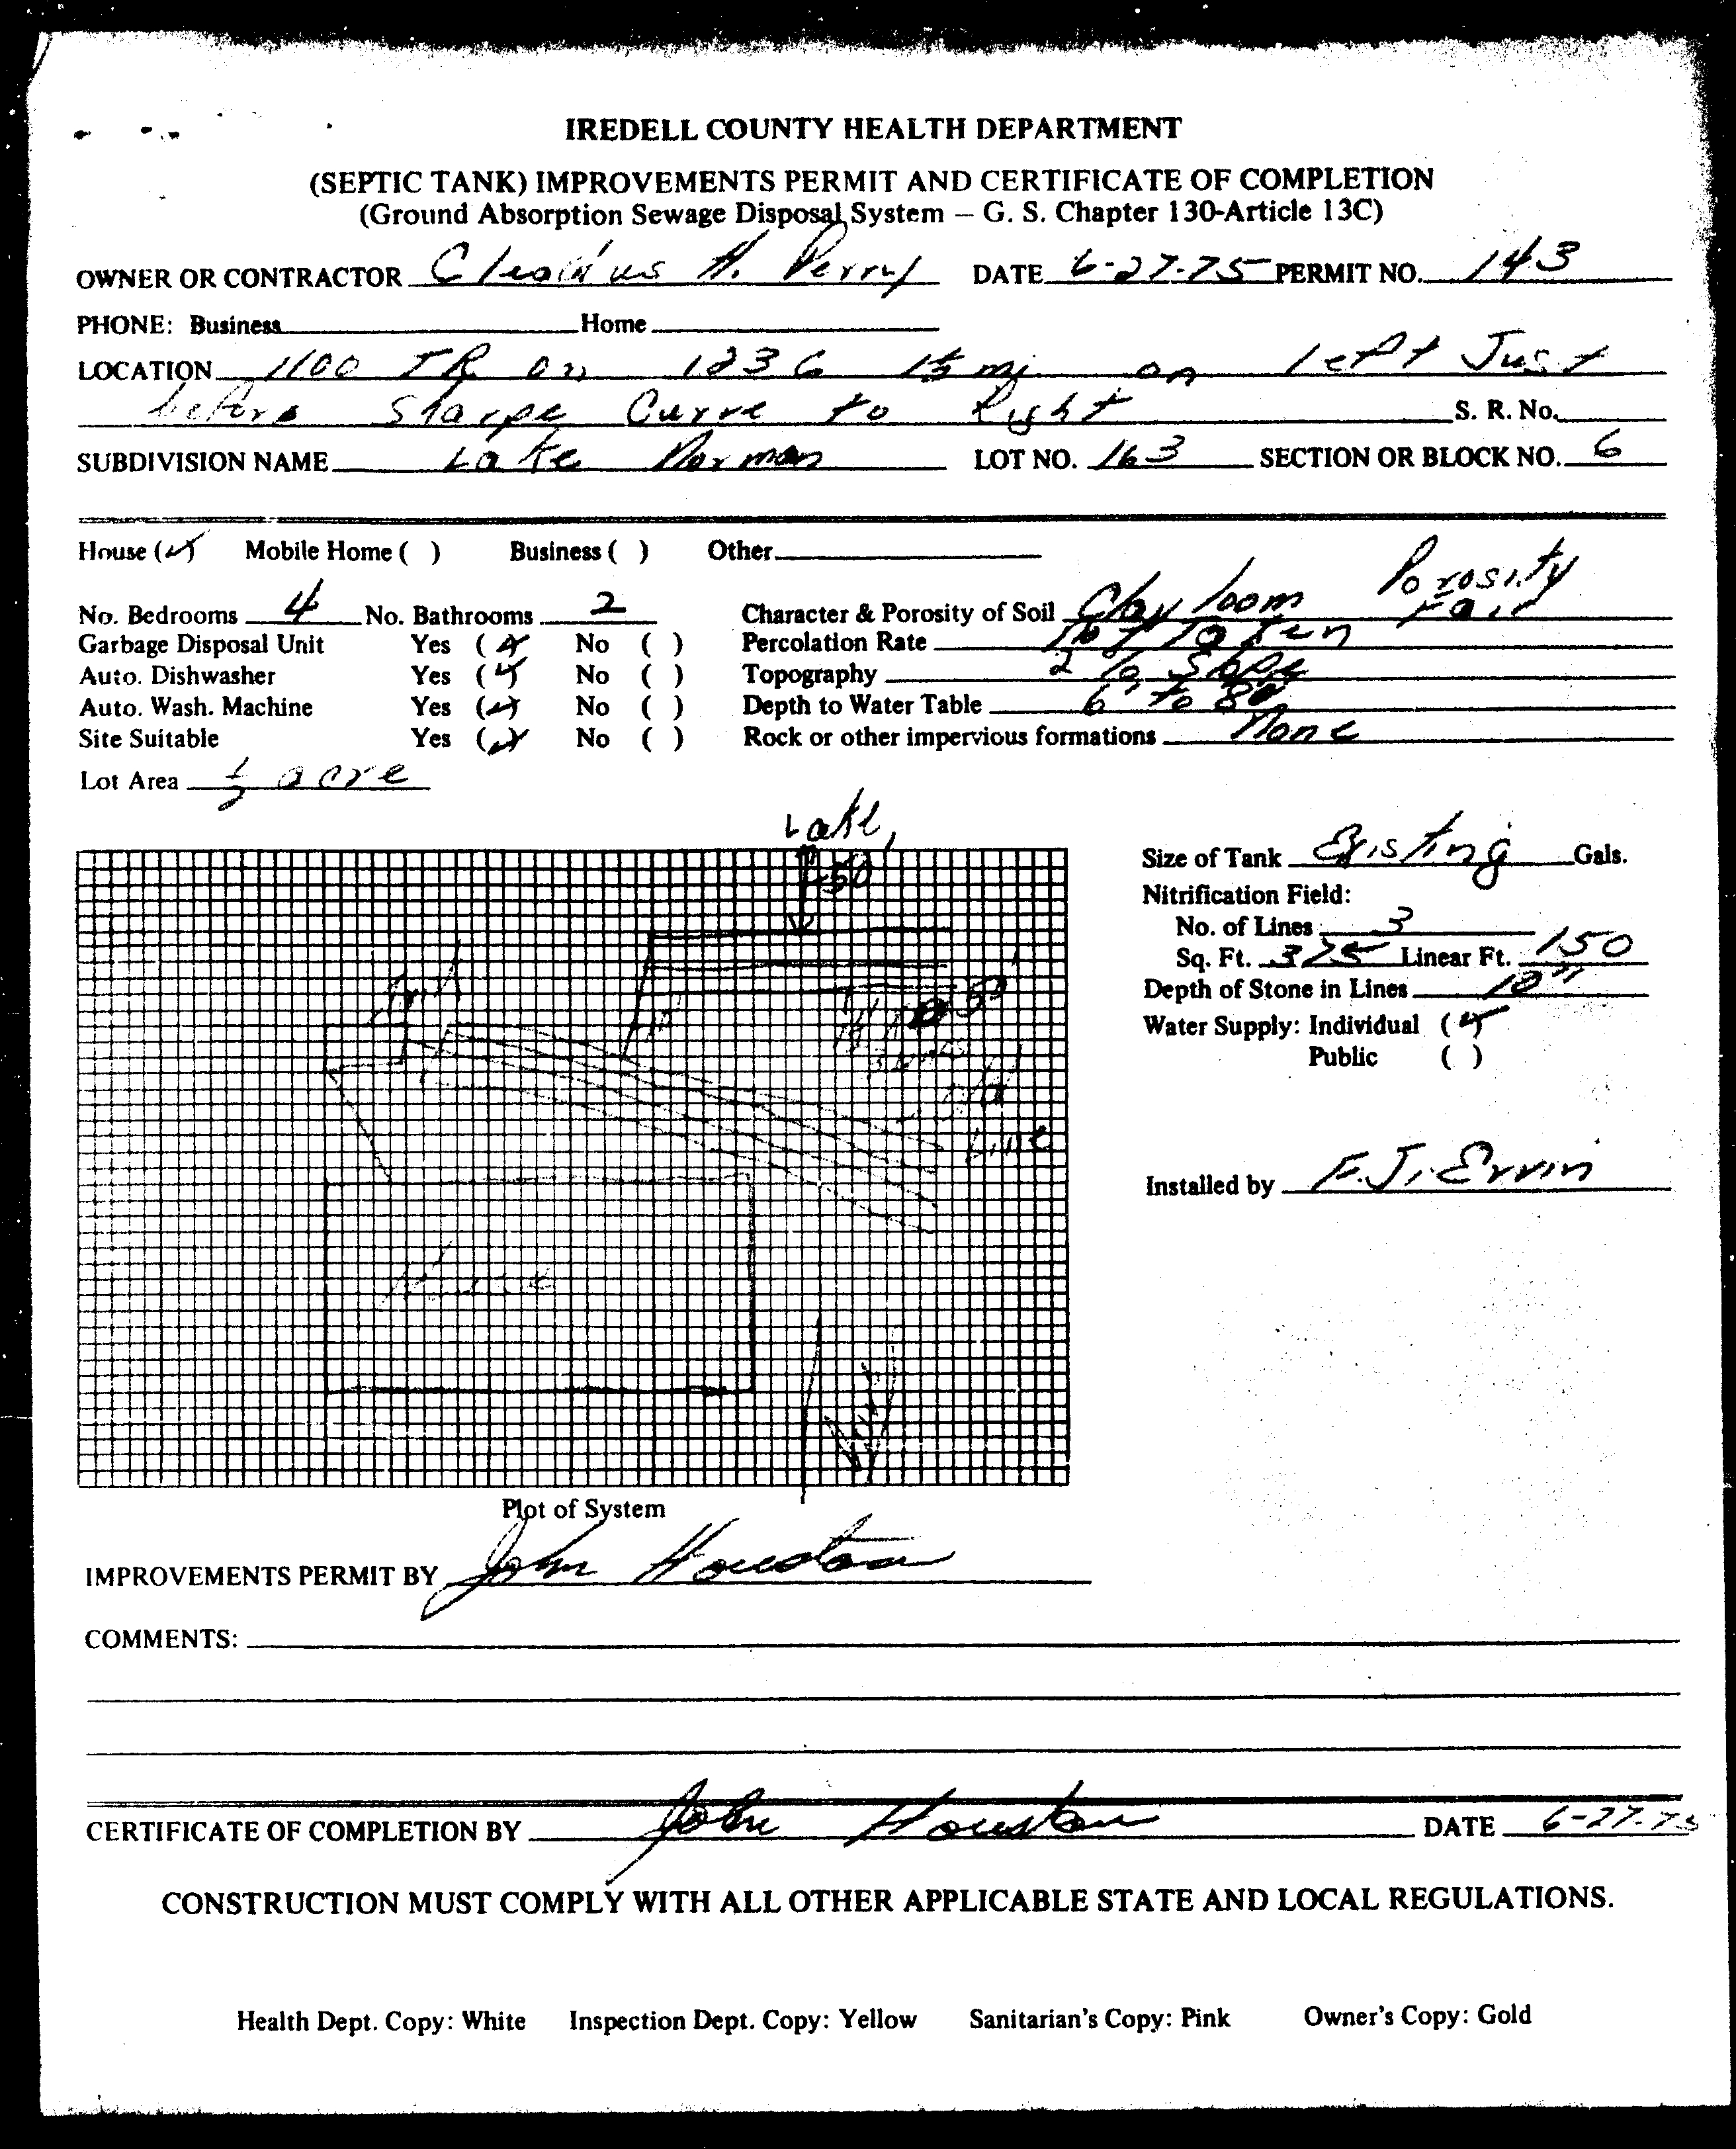 IREDELL COUNTY HEALTH DEPARTMENT
(SEPTIC TANK) IMPROVEMENTS PERMIT AND CERTIFICATE OF COMPLETION
(Ground Absorption Sewage Disposal System – G. S. Chapter 130-Article 13C)
OWNER OR CONTRACTOR H. Perry DATE 6-27-75 PERMIT NO. 143
PHONE: Business Home
LOCATION 1100 TR on 1236 1½ mi on left Just
before Sharpe Curve to Right S. R. No.
SUBDIVISION NAME Lake Norman LOT NO. 163 SECTION OR BLOCK NO. 6
House (✓) Mobile Home ( ) Business ( ) Other
Porosity
No. Bedrooms 4 No. Bathrooms 2 Character & Porosity of Soil Clay loom Fair
Garbage Disposal Unit Yes (✓) No ( ) Percolation Rate Not Taken
Auto. Dishwasher Yes (✓) No ( ) Topography 2 % Slope
Auto. Wash. Machine Yes (✓) No ( ) Depth to Water Table 6' to 8'
Site Suitable Yes (✓) No ( ) Rock or other impervious formations None
Lot Area ½ acre
Lake
50'
50'
old
Line
House
Size of Tank Existing Gals.
Nitrification Field:
No. of Lines 3
Sq. Ft. 375 Linear Ft. 150
Depth of Stone in Lines 10"
Water Supply: Individual (✓)
Public ( )
Installed by F.J. Ervin
Plot of System
IMPROVEMENTS PERMIT BY John Houston
COMMENTS:
CERTIFICATE OF COMPLETION BY John Houston DATE 6-27-75
CONSTRUCTION MUST COMPLY WITH ALL OTHER APPLICABLE STATE AND LOCAL REGULATIONS.
Health Dept. Copy: White Inspection Dept. Copy: Yellow Sanitarian's Copy: Pink Owner's Copy: Gold